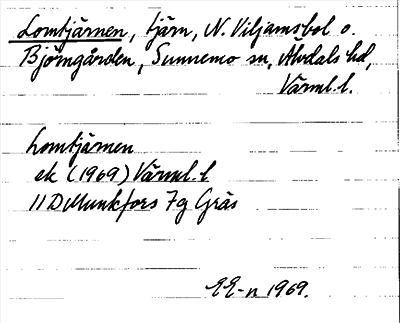 Lomtjärnen, tjärn, N. Viljamsbol o.
Björngården, Sunnemo sn, Älvdals hd,
Värml. l.
Lomtjärnen
ek (1969) Värml. l.
11 D Munkfors 7g Gräs
EE-n 1969.